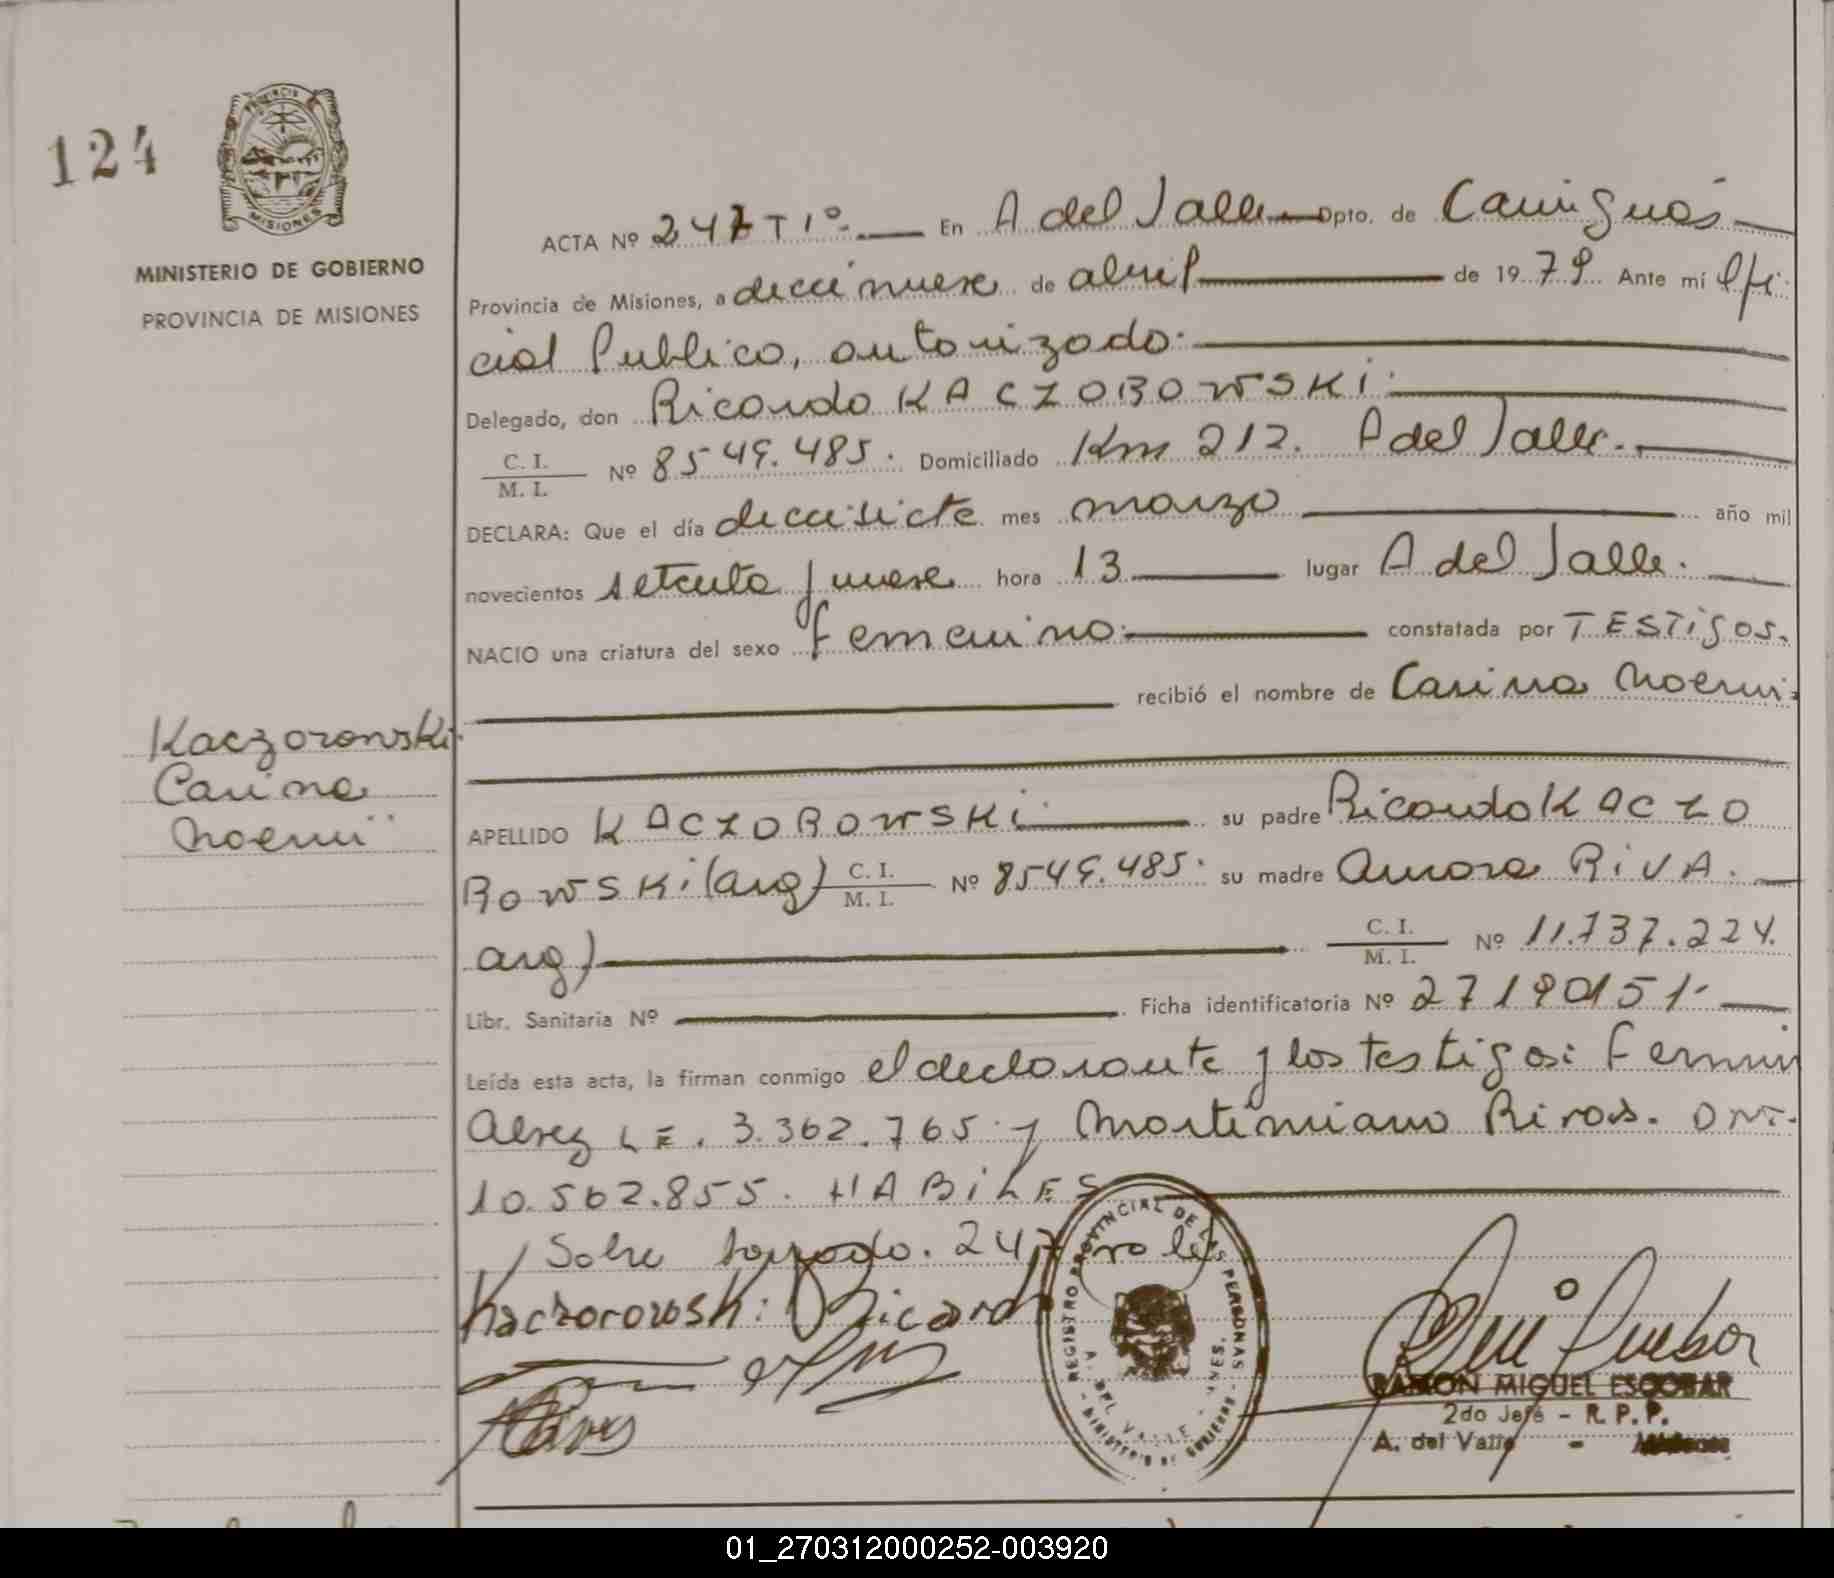 124
PROVINCIA
MISIONES
MINISTERIO DE GOBIERNO
PROVINCIA DE MISIONES
Kaczorowski
Carina
Noemi
ACTA Nº 247 T 1º.- En A del Valle Dpto. de Cainguás
Provincia de Misiones, a diecinueve de abril de 1979 Ante mí Ofi
cial Publico, autorizado.
Delegado, don Ricardo KACZOROWSKi.
C. I.
M. I. Nº 8549.485. Domiciliado Km 212. A del Valle.
DECLARA: Que el día diecisiete mes marzo año mil
novecientos setenta y nueve hora 13 lugar A del Valle.
NACIO una criatura del sexo femenino. constatada por TESTiGOS.
recibió el nombre de Carina Noemi.
APELLIDO KACZOROWSKi su padre Ricardo KACZO
ROWSKi (arg) C. I.
M. I. Nº 8549.485. su madre Aurora RiVA.
arg) C. I.
M. I. Nº 11.737.224.
Libr. Sanitaria Nº Ficha identificatoria Nº 27190151.
Leída esta acta, la firman conmigo el declarante y los testigos: Fermin
Alvez LE. 3.362.765 y Martimiano Rivas. DNI.
10.562.855. HABiLES
Sobre borrado. 247 vale
Kaczorowski Ricardo
REGISTRO PROVINCIAL DE LAS PERSONAS
A. DEL VALLE - MNES.
- MINISTERIO DE GOBIERNO -
RAMON MIGUEL ESCOBAR
2do Jefe - R. P. P.
A. del Valle - Misiones
01_270312000252-003920